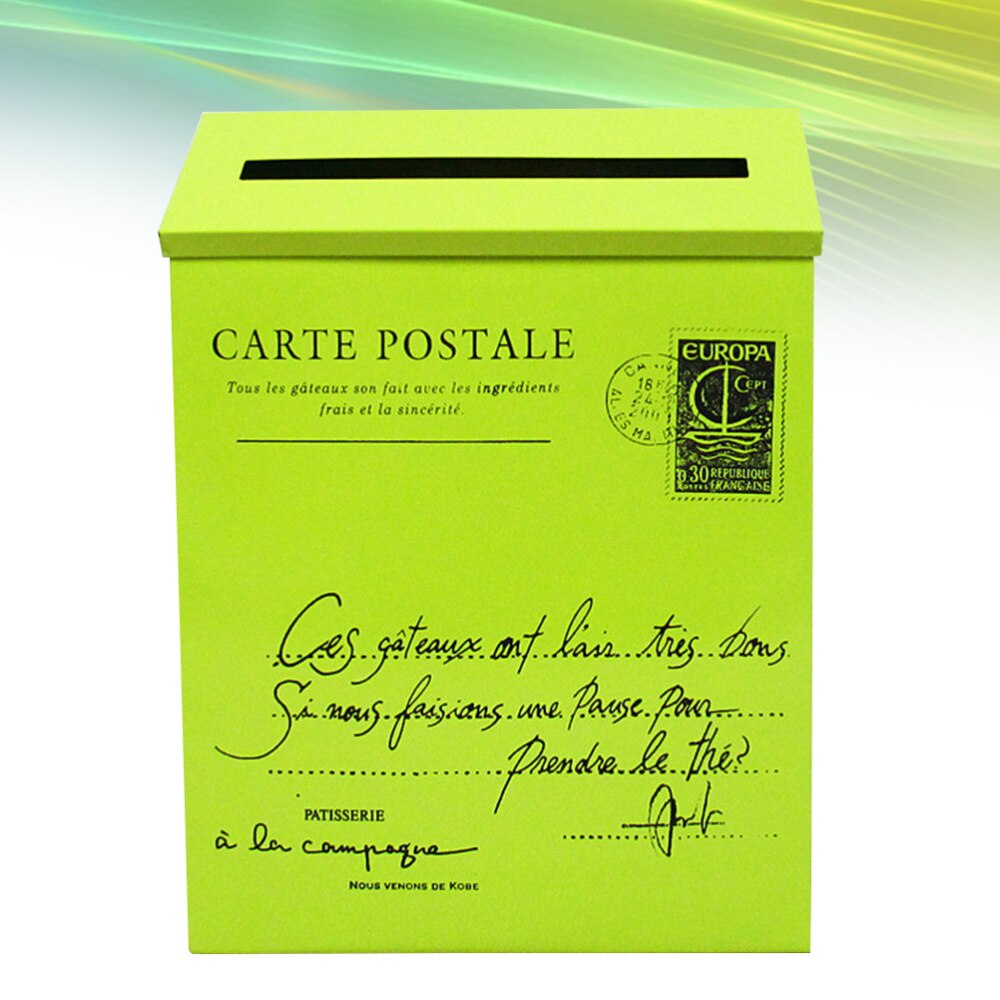 CARTE POSTALE
Tous les gâteaux son fait avec les ingrédients
frais et la sincérité.
EUROPA
CEPT
0.30 REPUBLIQUE
POSTES FRANÇAISE
Ces gâteaux ont l'air très bons
Si nous faisions une Pause Pour
Prendre le thé?
PATISSERIE
à la campagne
NOUS VENONS DE KOBE